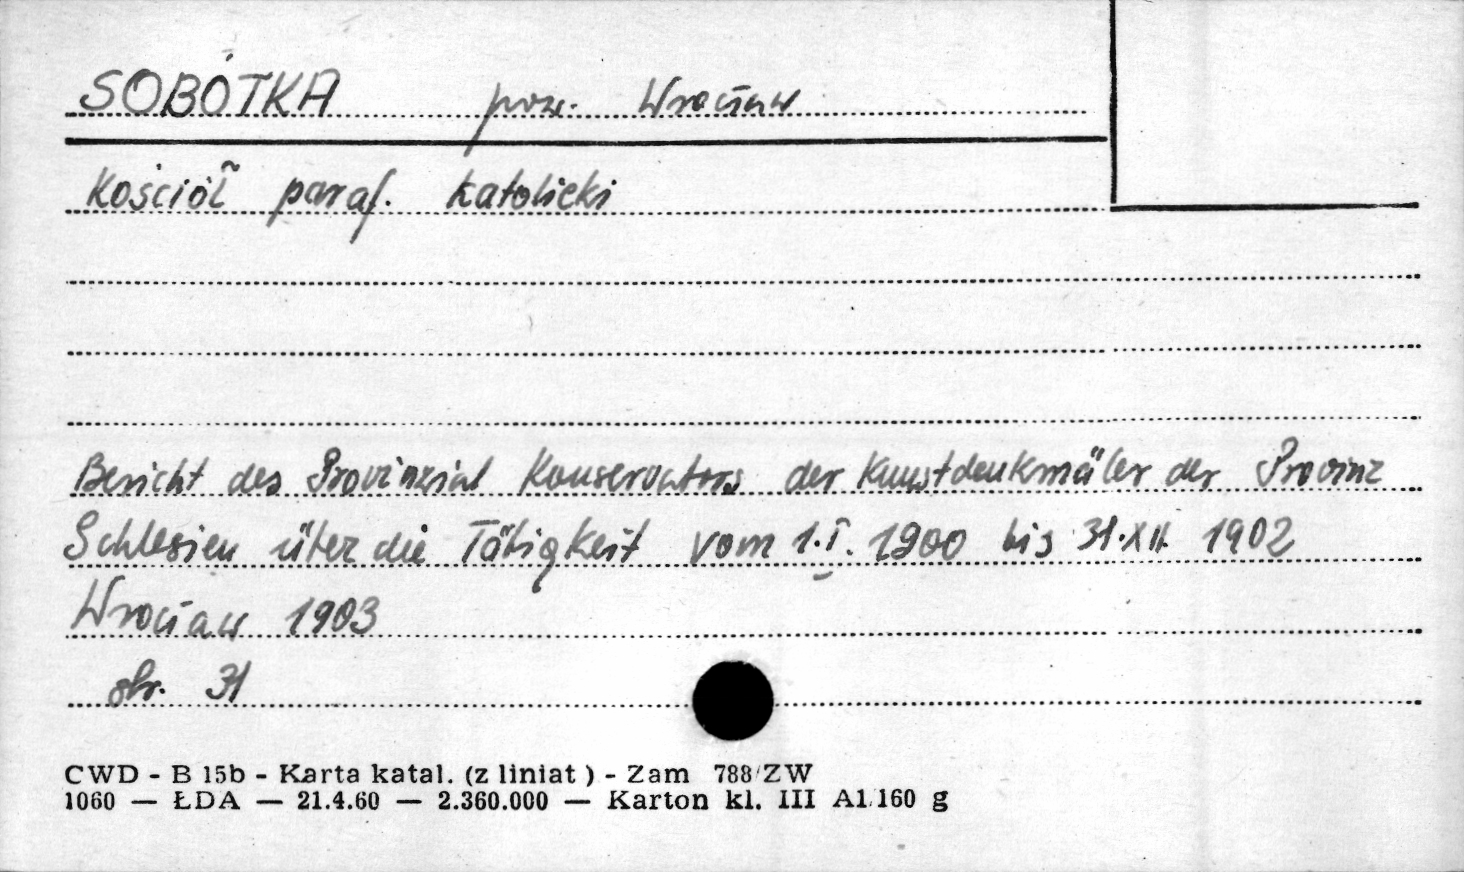 SOBÓTKA pow. Wrocław
Kościół paraf. katolicki
Bericht des Provinzial Konservators der Kunstdenkmäler der Provinz
Schlesien über die Tätigkeit vom 1.I. 1900 bis 31.XII. 1902
Wrocław 1903
str. 31
CWD - B 15b - Karta katal. (z liniat ) - Zam 788/ZW
1060 — ŁDA — 21.4.60 — 2.360.000 — Karton kl. III A1 160 g